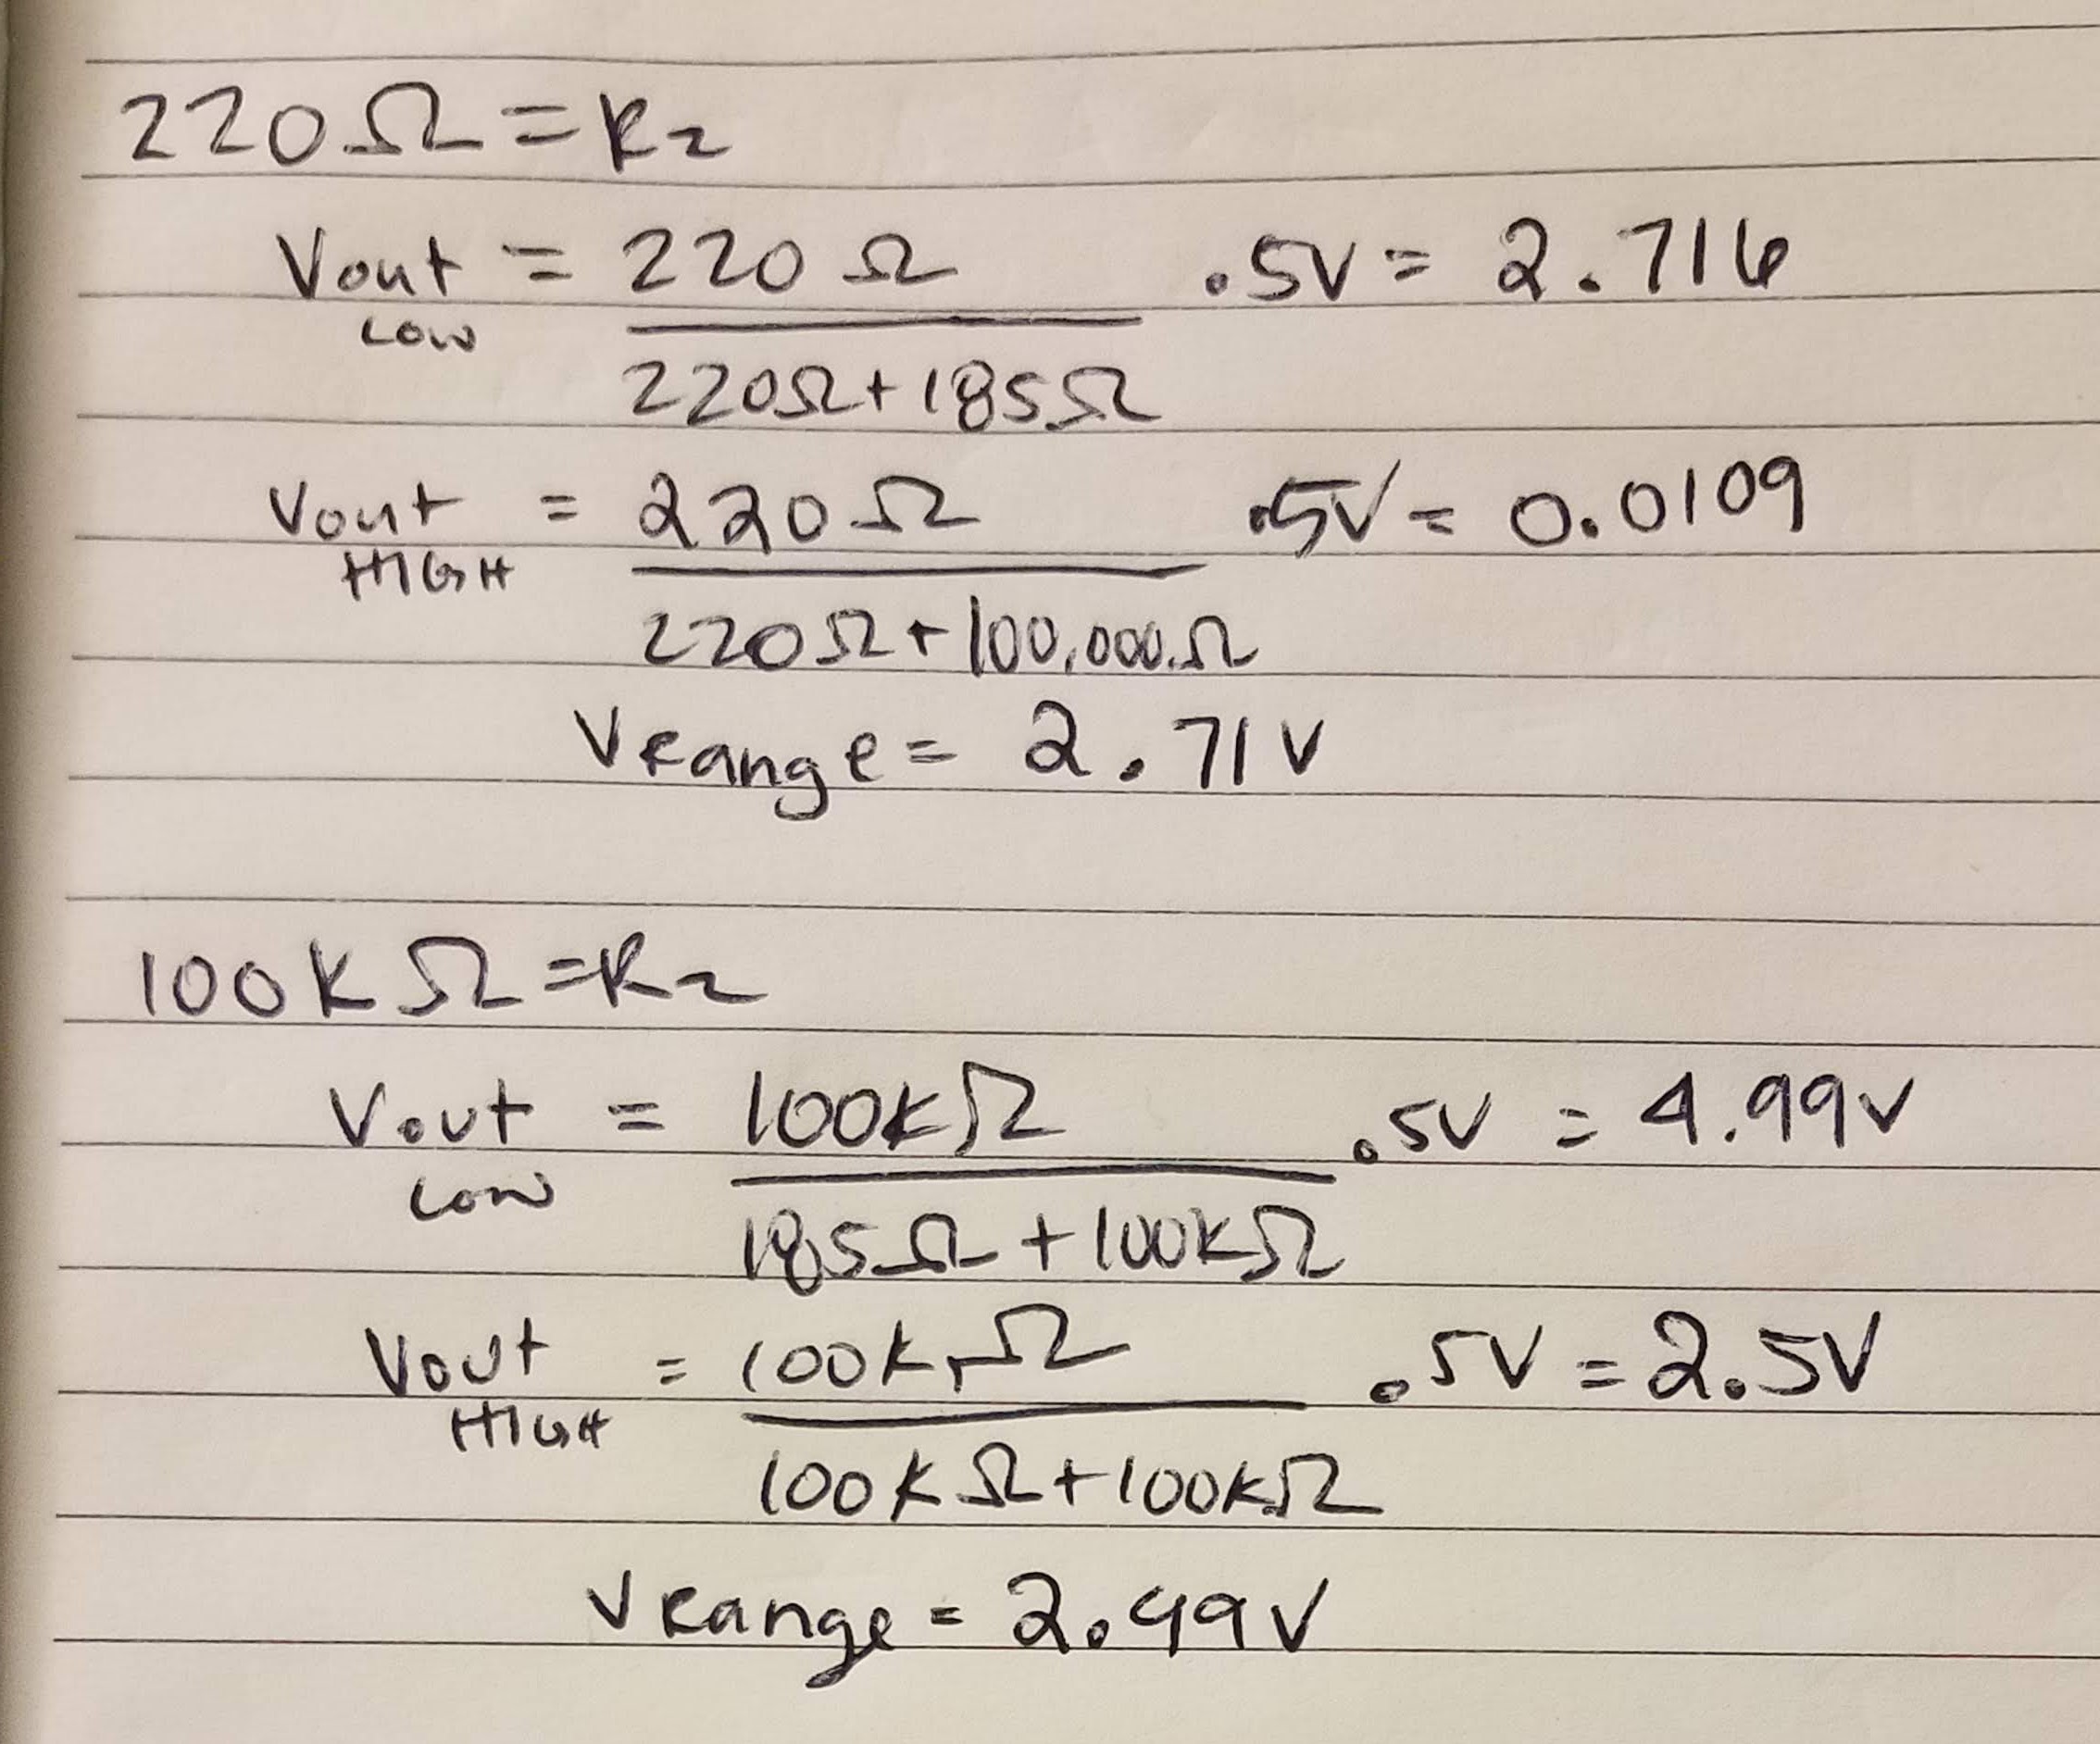 220Ω = R2
Vout LOW = 220Ω / 220Ω + 185Ω · 5V = 2.716
Vout HIGH = 220Ω / 220Ω + 100,000Ω · 5V = 0.0109
VRange = 2.71V
100KΩ = R2
Vout Low = 100KΩ / 185Ω + 100KΩ · 5V = 4.99V
Vout HIGH = 100KΩ / 100KΩ + 100KΩ · 5V = 2.5V
VRange = 2.49V